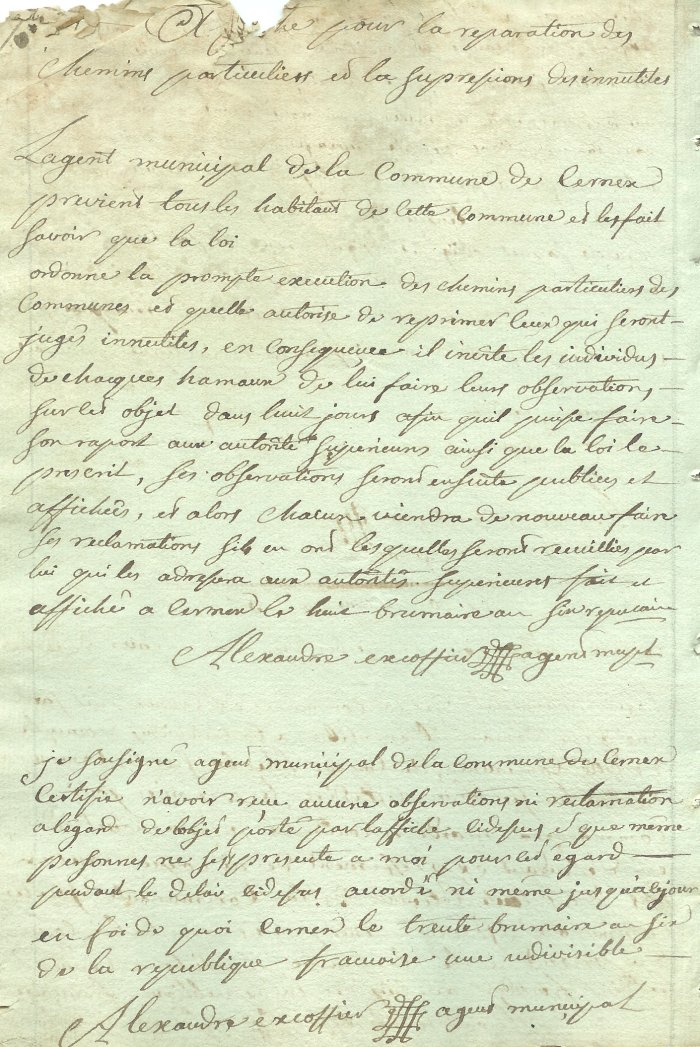 pour la reparation des
chemins particuliers et la supresions des innutiles
Lagent muniçipal de la Commune de Cernex
previent tous les habitant de Cette Commune et les fait
savoir que la loi
ordonne la prompte execution des chemins particuliers des
Communes et quelle autorise de reprimer Ceux qui seront
jugés innutiles, en Consequence il invite les individus
de chacques hamaux de lui faire leurs observations
sur cet objet dans huit jours afin quil puise faire
son raport aux autorité superieurs ainsi que la loi le
prescrit, ses observations seront ensuite publiees et
affichées, et alors Chacun viendra de nouveau faire
ses reclamations sils en ont lesquelles seront recuillies par
lui qui les adresera aux autorités superieures fait et
affiché a Cernex le huit brumaire an six repucaine
Alexandre excoffier agent mupl
je sousigné agent muniçipal de la Commune de Cernex
Certifie n'avoir reçue aucune observations ni reclamation
a legard de lobjet porté par laffiche cidesus et que même
personnes ne ses presente a moi pour cet égard
pendant le délai cidesus acordé ni même jusqua ce jour
en foi de quoi Cernex le trente brumaire an six
de la republique francoise une indivisible
Alexandre excoffier agent muniçipal